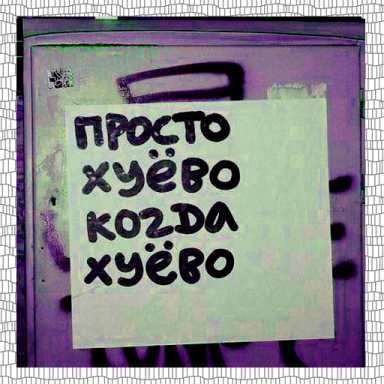 ПРОСТО
ХУЁВО
КОГДА
ХУЁВО